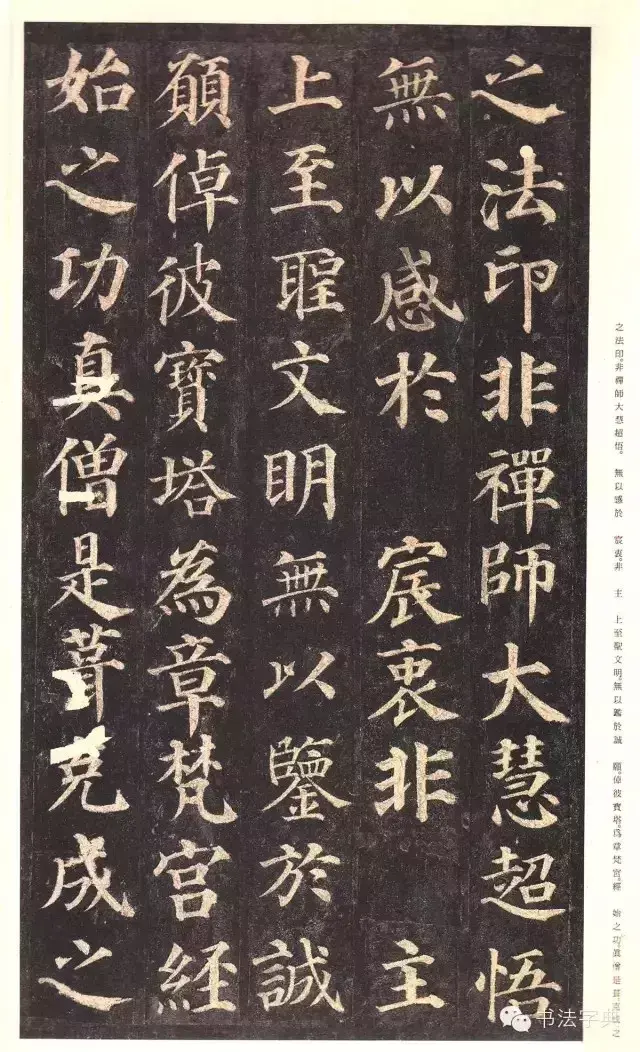 之法印非禪師大慧超悟
無以感於 宸衷非 主
上至聖文明無以鑒於誠
願倬彼寶塔為章梵宮経
始之功真僧是葺克成之
之法印。非禪師大慧超悟。 無以感於 宸衷。非 主 上至聖文明。無以鑑於誠 願。倬彼寶塔。爲章梵宮。經 始之功。眞僧是葺。克成之
书法字典